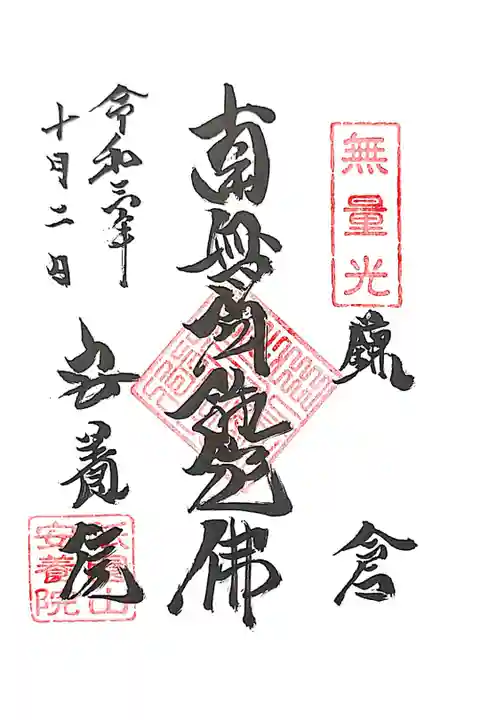 無量光
鎌倉
南無阿弥陀佛
令和三年
十月二日
安養院
祇園山
安養院